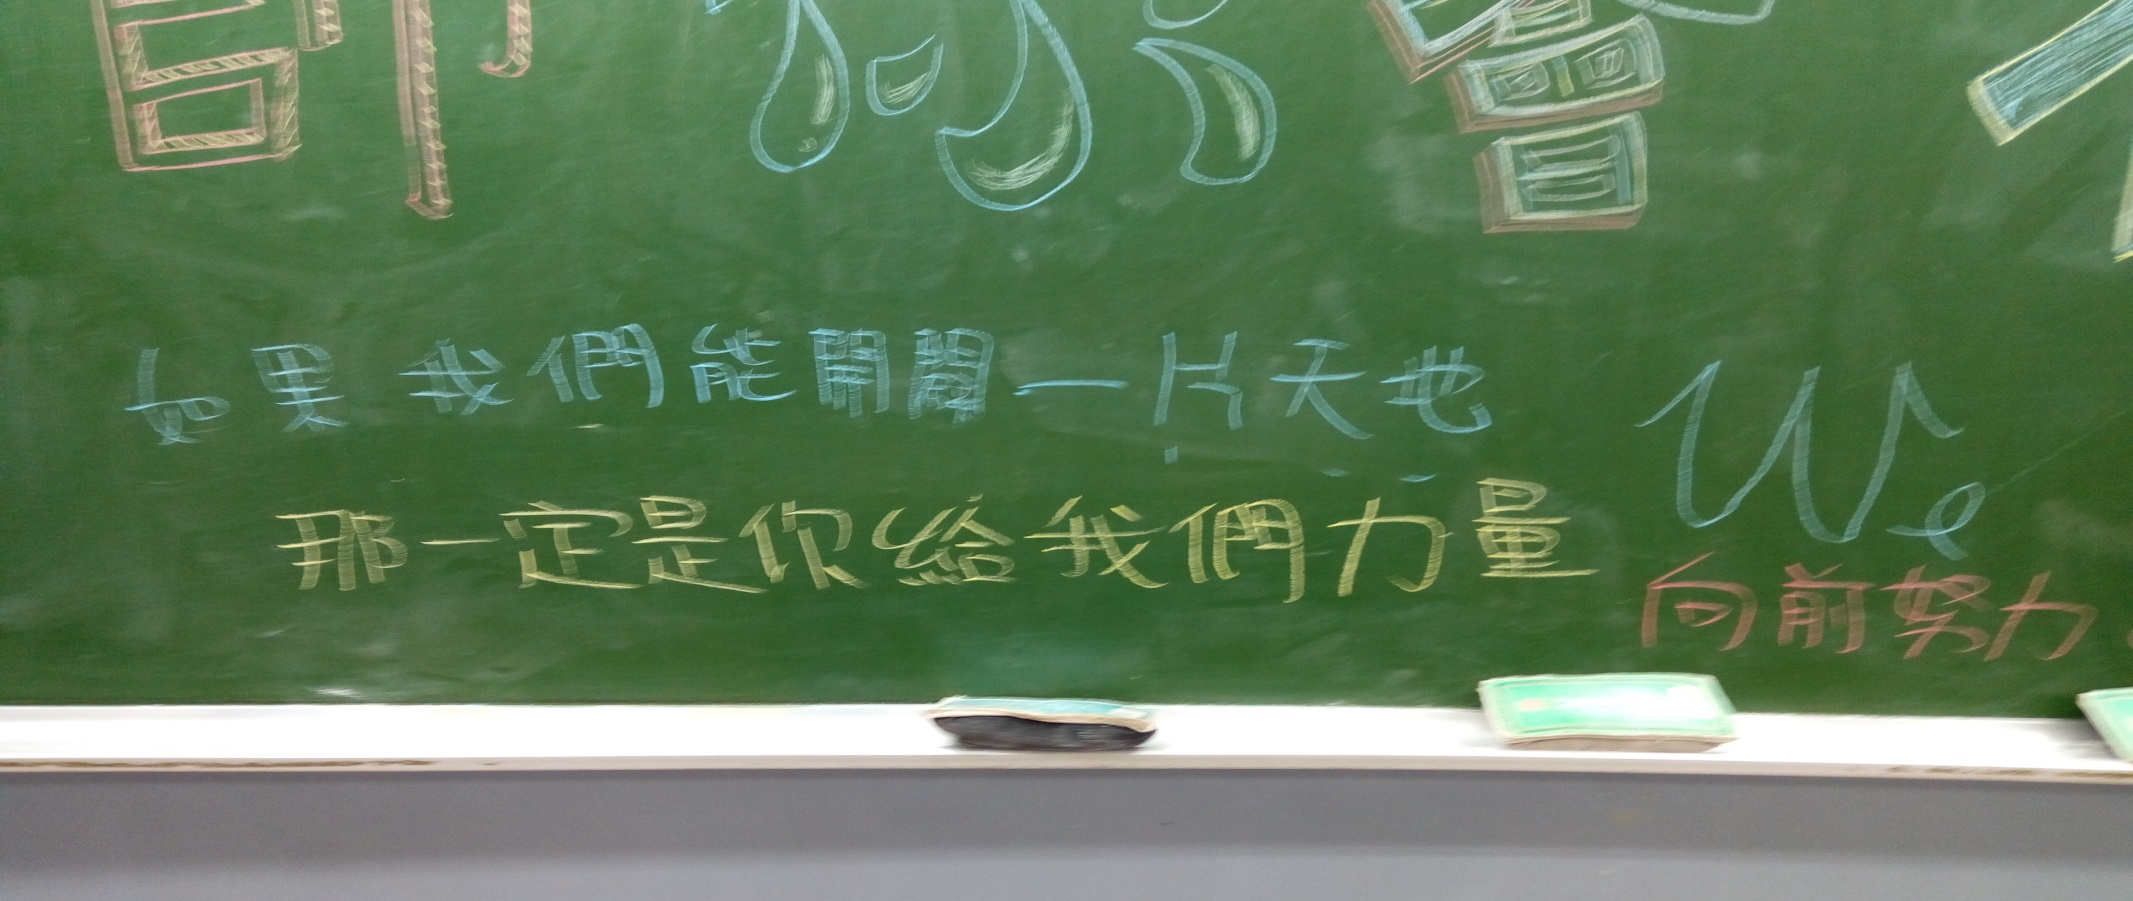 如果我們能開闢一片天地
那一定是你給我們力量
We
向前努力